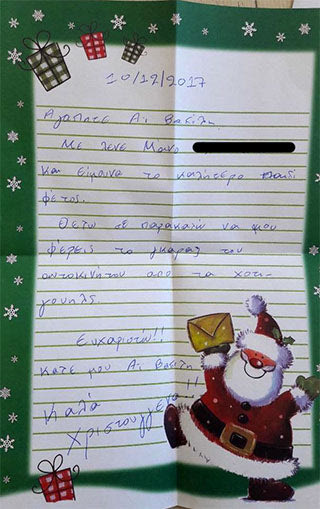 10/12/2017
Αγαπητε Αι Βασιλη
Με λενε Μανο
και είμαινα το καλητερο παιδί
φετος.
Θετω σε παρακαλώ να μου
φέρεις το γκαραζ του
αυτοκινητου απο τα χοτ-
γουηλς.
Ευχαριστώ!!
Κατε μου Αι Βασιλη
Καλα
Χριστουγεννα!!